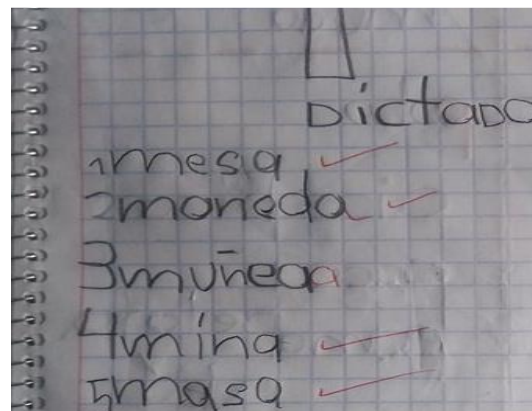 Dictado
1 mesa
2 moneda
3 muñeqa
4 mina
5 masa